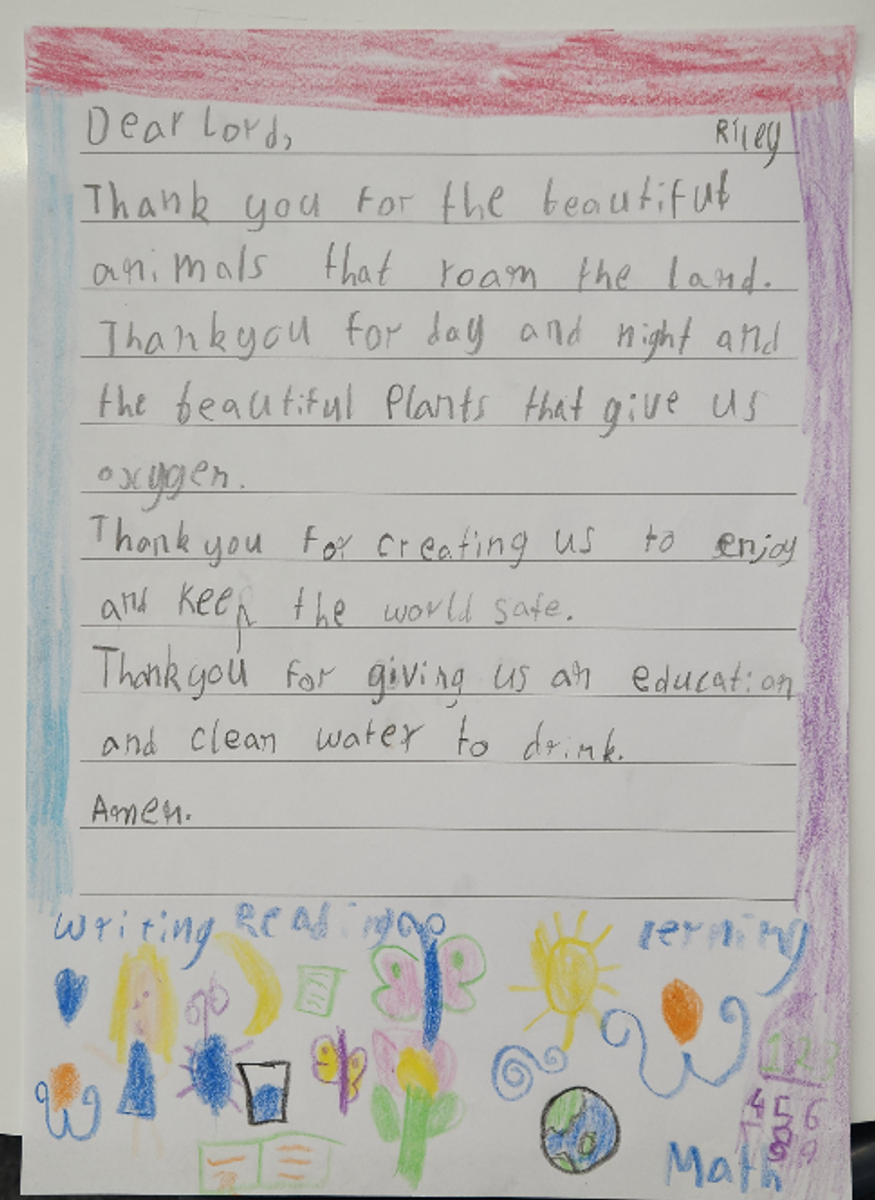 Dear Lord,
Riley
Thank you for the beautiful
animals that roam the land.
Thankyou for day and night and
the beautiful Plants that give us
oxygen.
Thank you for creating us to enjoy
and keep the world safe.
Thankyou for giving us an education
and clean water to drink.
Amen.
writing Reading lerning
1 2 3
4 5 6
Math